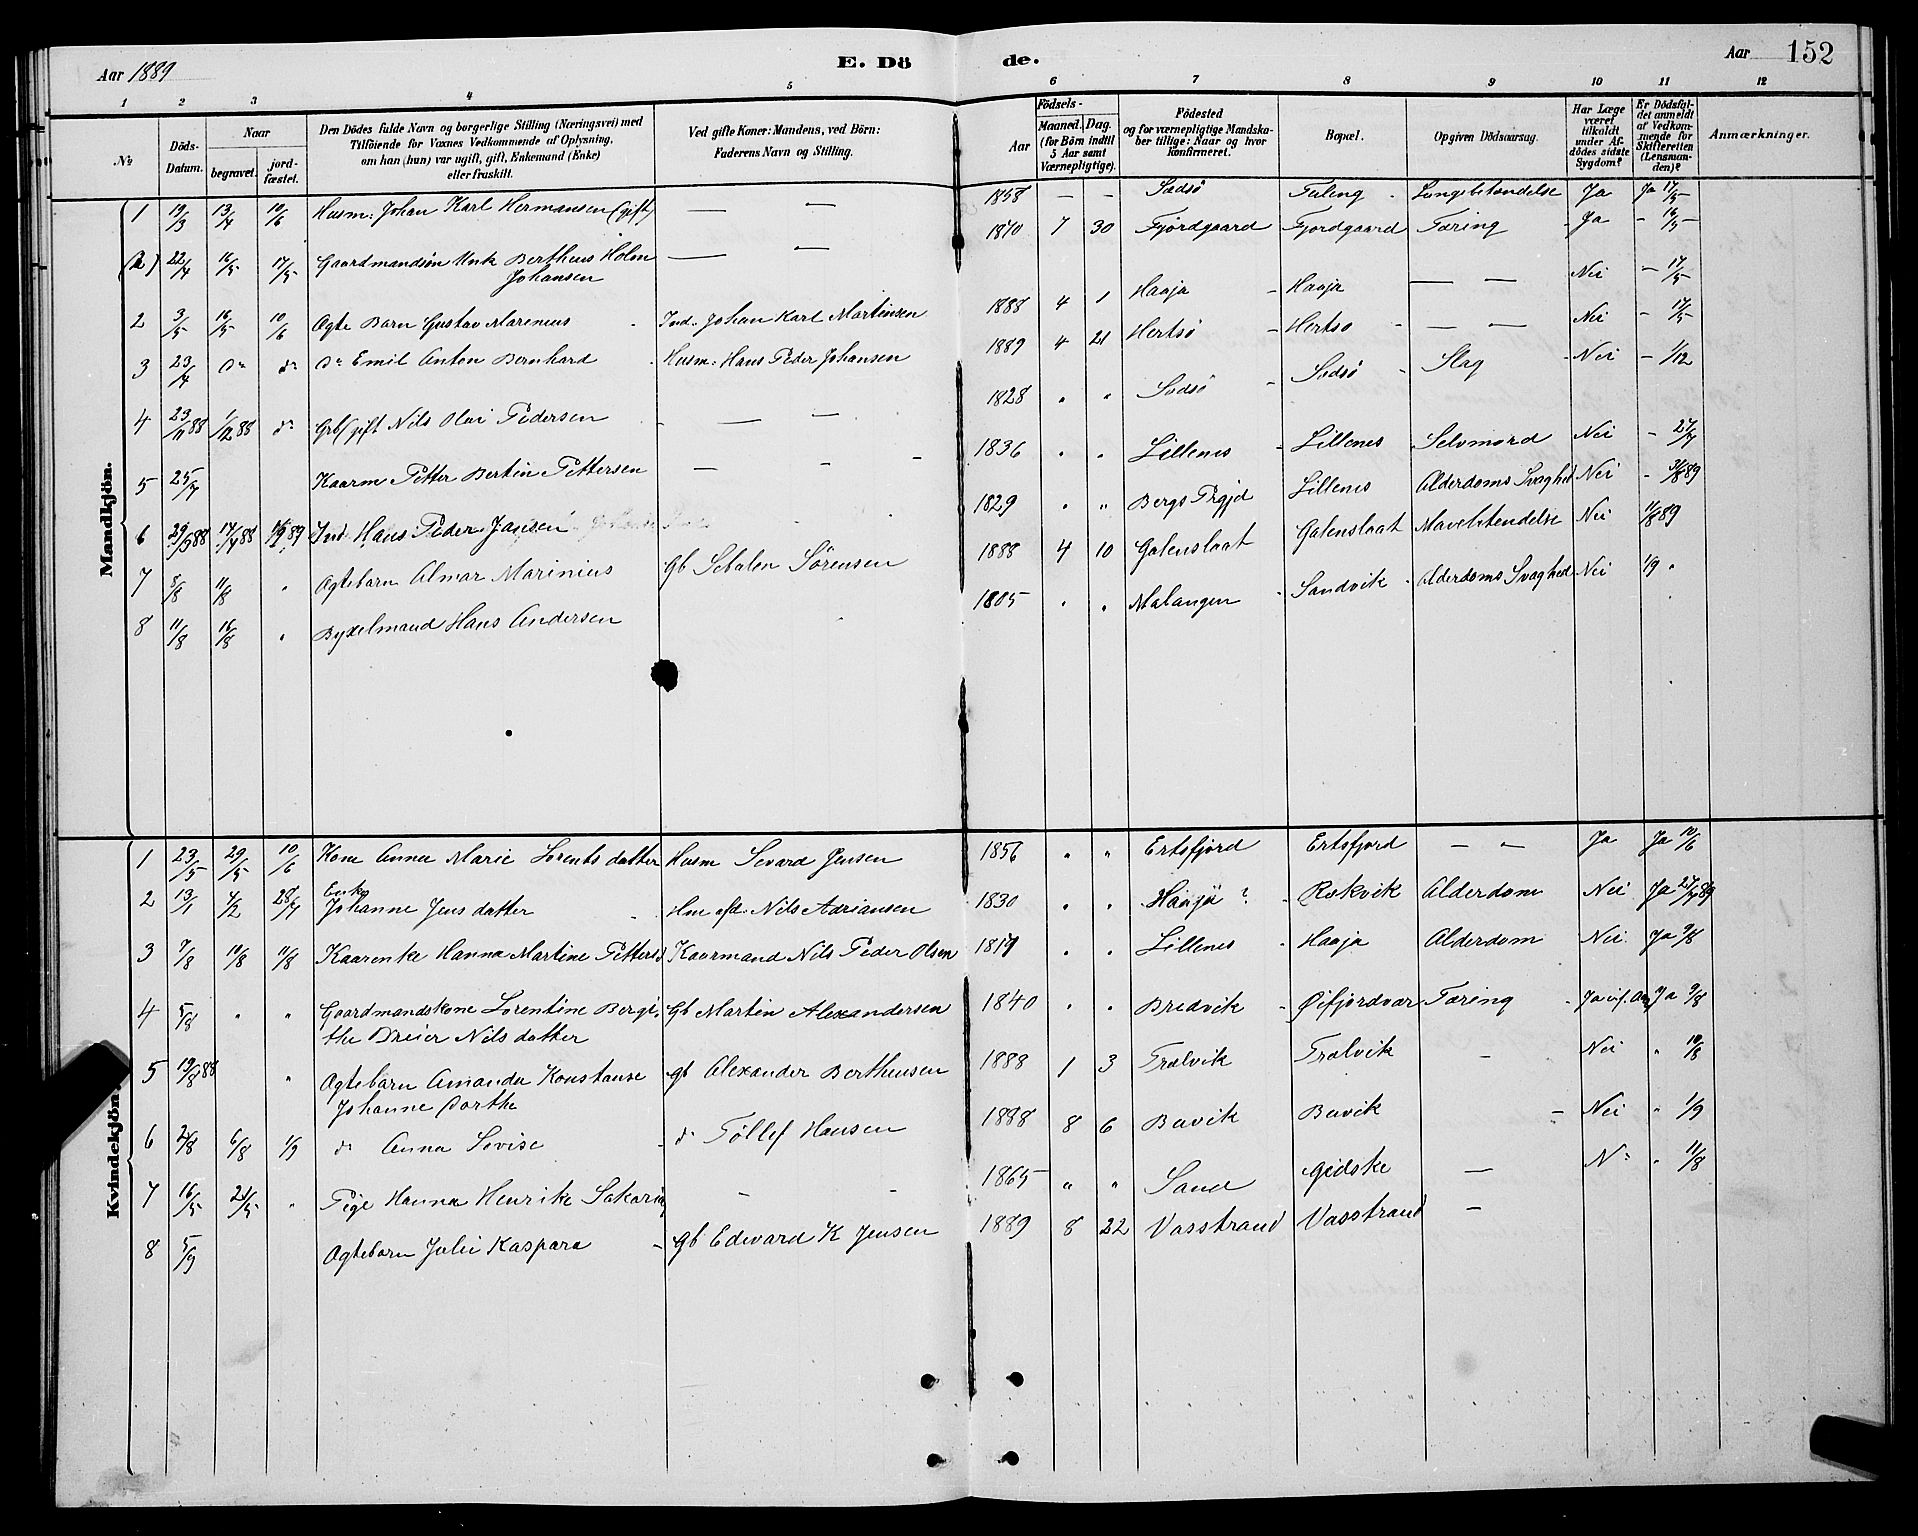 Aar 1889
E. Dö
de.
Aar
152
1 2 3 4 5 6 7 8 9 10 11 12
No
Döds-Datum.
Naar
begravet.
jord-fæstet.
Den Dödes fulde Navn og borgerlige Stilling (Næringsvei) med
Tilföiende for Voxnes Vedkommende af Oplysning,
om han (hun) var ugift, gift, Enkemand (Enke)
eller fraskilt.
Ved gifte Koner: Mandens, ved Börn:
Faderens Navn og Stilling.
Födsels-
Aar
Maaned. Dag.
(for Börn indtil
5 Aar samt
Værnepligtige).
Födested
og for værnepligtige Mandska-
ber tillige: Naar og hvor
konfirmeret.
Bopæl.
Opgiven Dödsaarsag.
Har Læge
været
tilkaldt
under Af-
dödes sidste
Sygdom?
Er Dödsfal-
det anmeldt
af Vedkom-
mende for
Skifteretten
(Lensman-
den)?
Anmærkninger.
Mandkjön.
1 19/3 13/4 10/6 Husm: Johan Karl Hermansen (gift) — — 1858 — — Sadsö Tuling Lungebetændelse Ja Ja 17/5
(2) 22/4 16/5 17/5 Gaardmandsön Unk Bertheus Holm — — 1870 7 30 Fjordgaard Fjordgaard Tæring Ja - 16/5
Johansen
2 3/5 16/5 10/6 Ægte Barn Gustav Marenius Ind. Johan Karl Martinsen 1888 4 1 Haaja Haaja — — Nei - 17/5
3 23/4 do do do Emil Anton Bernhard Husm: Hans Peder Johansen 1889 4 21 Hertsö Hertsö — — Nei - 17/5
4 23/11 88 1/12 88 do Grb/gift Nils Olai Pedersen — — 1828 " " Sadsö Sadsö Slag Nei - 1/12
5 25/7 Kaarm Petter Bertin Pettersen — - 1836 " " Lillenes Lillenes Selvmord Nei - 27/7
6 29/5 88 17/7 88 Ind. Hans Peder Jansen 1829 " " Bergs Prgjd Lillenes Alderdoms Svaghed Nei - 31/8 89
7 8/8 11/8 " Ægtebarn Almar Marinius Gb Sebalen Sörensen 1888 4 10 Galenslaat Galenslaat Mavebetendelse Nei 11/8 89
8 11/8 16/8 " Byxelmand Hans Andersen 1805 " " Malangen Sandvik Alderdoms Svaghed Nei 1/9 "
Kvindekjön.
1 23/5 29/5 10/6 Kone Anna Marie Lorentsdatter Husm Sevard Jensen 1856 " " Ertsfjord Ertsfjord — " Ja Ja 10/6
2 13/1 4/2 28/7 Enke
Johanne Jensdatter Hm efd. Nils Adriansen 1830 " " Haajö ? Rekvik Alderdom Nei Ja 27/7 89
3 7/8 10/8 11/8 Kaarenke Hanna Martine Petters d Kaarmand Nils Peder Olsen 1819 " " Lillenes Haaja Alderdom Nei. Ja 9/8
4 5/8 " " Gaardmandskone Lorentine Bergi- Gb Martin Alexandersen 1840 " " Bredvik Öifjordvær Tæring Ja Ja 9/8
the Dreier Nilsdatter
5 19/8 88 " Ægtebarn Amanda Konstanse gb Alexander Bertheusen 1888 1 3 Trælvik Trælvik - Nei " 10/8
Johanne Dorthe
6 2/8 6/8 1/9 do Anna Lovise do Töllef Hansen 1888 8 6 Buvik Buvik Nei " 1/9
7 16/5 21/5 " Pige Hanna Henrike Sakaria - - 1865 " " Sand Gidske — No " 11/8
8 5/9 Ægtebarn Julie Kaspara gb Edevard K Jensen 1889 8 22 Vasstrand Vasstrand —